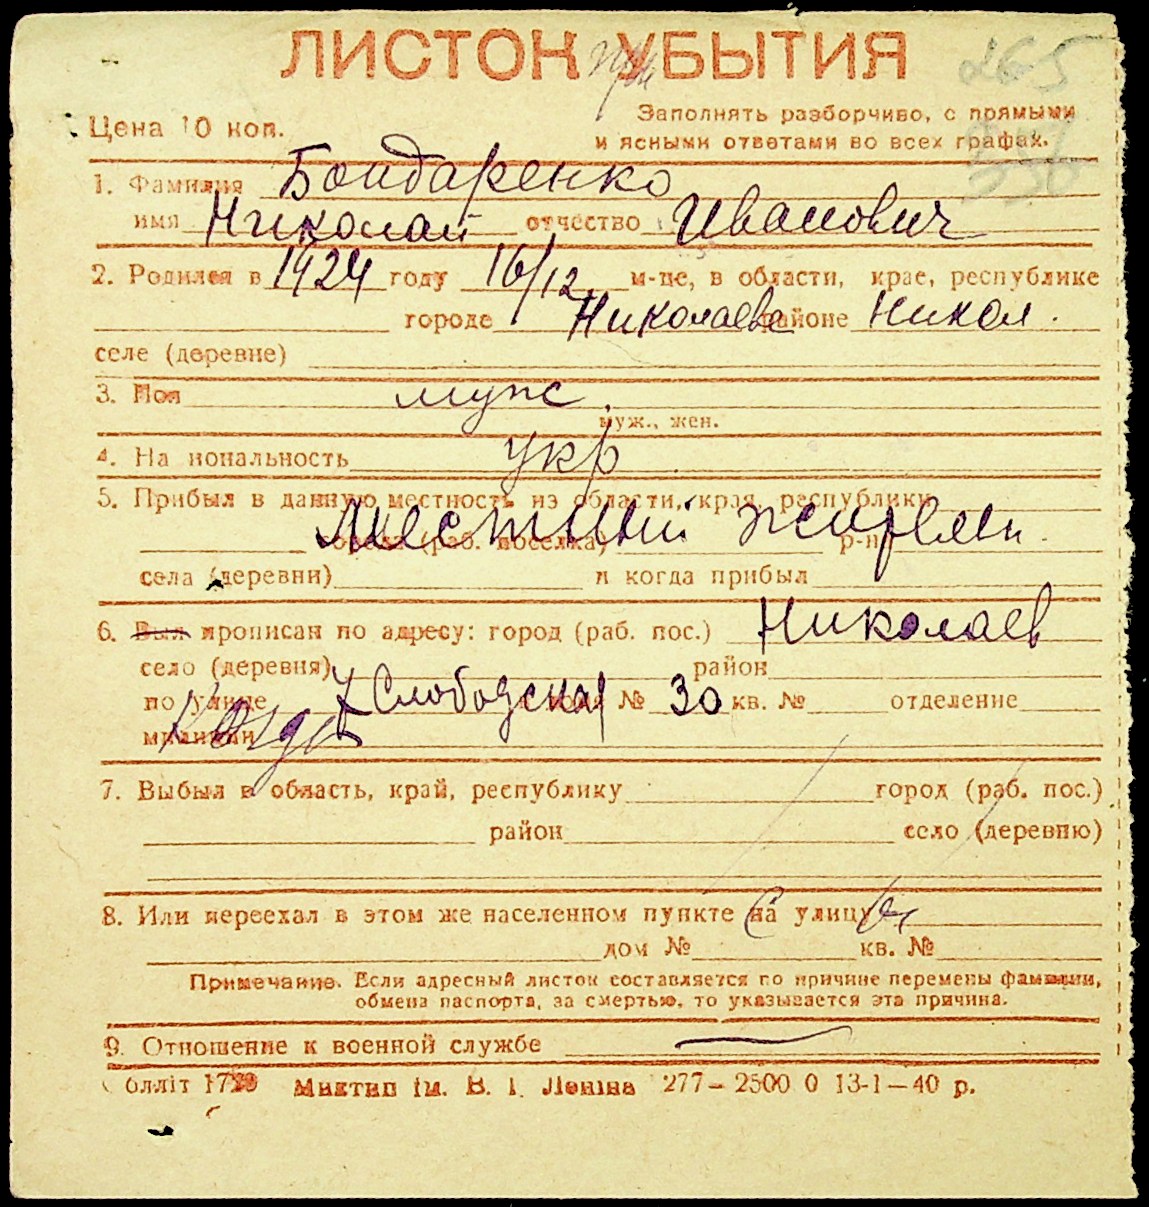 ЛИСТОК УБЫТИЯ
265
Цена 10 коп.
Заполнять разборчиво, с прямыми
и ясными ответами во всех графах.
1. Фамилия Бондаренко
имя Николай отчество Иванович
2. Родился в 1924 году 16/12 м-це, в области, крае, республике
городе Николаеве районе Никол.
селе (деревне)
3. Пол муж.
муж., жен.
4. На иональность укр
5. Прибыл в данную местность из области, края, республики
Местный жителен
города (раб. поселка) р-н
села (деревни) и когда прибыл
6. Был прописан по адресу: город (раб. пос.) Николаев
село (деревня) район
по улице Слободская № 30 кв. № отделение
милиции
7. Выбыл в область, край, республику город (раб. пос.)
район село (деревню)
8. Или переехал в этом же населенном пункте на улицу
дом № кв. №
Примечание. Если адресный листок составляется по причине перемены фамилии,
обмена паспорта, за смертью, то указывается эта причина.
9. Отношение к военной службе —
Облліт 1729 Миктип ім. В. І. Леніна 277–2500 0 13-1–40 р.